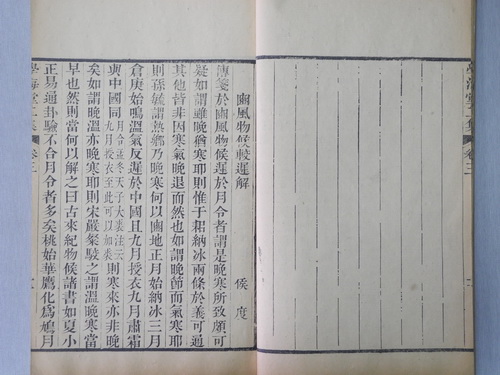 學海堂二集
卷三
豳風物候較遲解
侯度
薄箋於豳風物候遲於月令者謂是晚寒所致頗可
疑如謂雖晚猶寒耶則惟于耜納冰兩條於義可通
其他皆非因寒氣晚退而然也如謂晚節而氣寒耶
則孫毓謂熱鄉乃晚寒何以豳地正月始納冰三月
倉庚始鳴溫氣反遲於中國且九月授衣九月肅霜
與中國同月令並冬天子大裘注云九月授衣至此可以加裘則寒來亦非晚
矣如謂晚溫亦晚寒耶則宋嚴粲駁之謂溫晚寒當
早也然則當何以解之曰古來紀物候諸書如夏小
正易通卦驗不合月令者多矣桃始華鷹化爲鳩月
學海堂二集
卷三